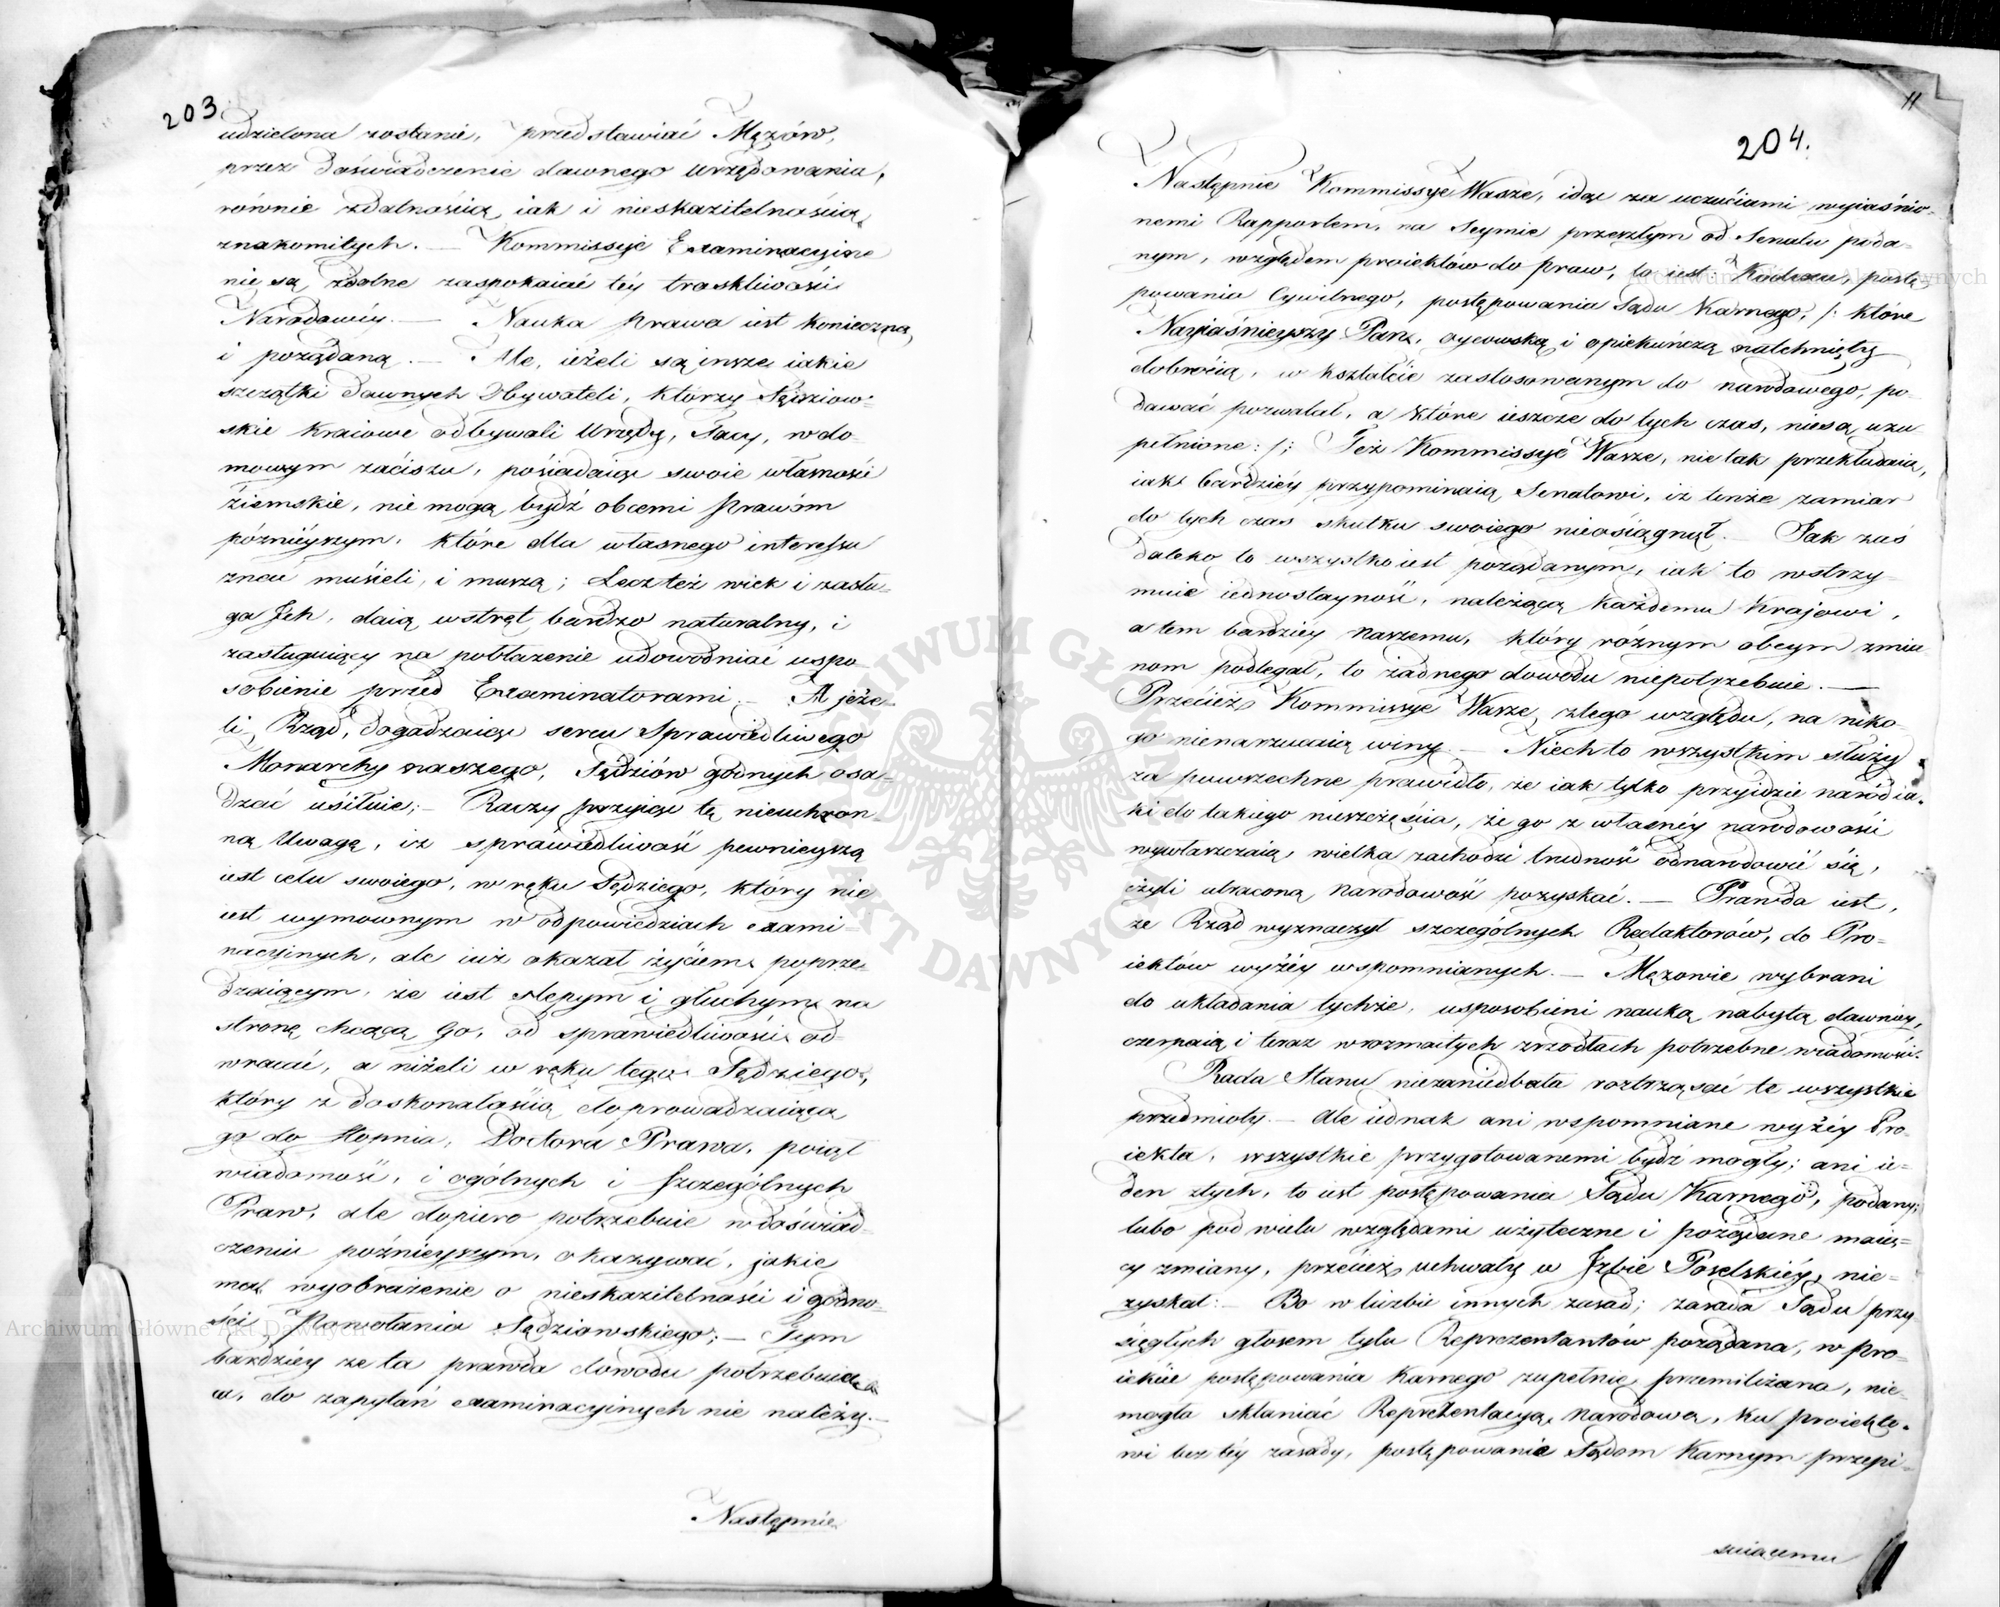 203
udzielona zostanie, przedstawiać Mężów,
przez doświadczenie dawnego urzędowania,
równie zdatnością, iak i nieskazitelnością,
znakomitych. — Kommissye Examinacyine
nie są zdolne zaspokaiać téy troskliwości
Narodowéy. — Nauka prawa iest konieczną,
i pożądaną. — Ale, ieżeli są insze iakie
szczątki dawnych Obywateli, którzy Sędziow-
skie kraiowe odbywali Urzędy, Tacy, w do-
mowym zaciszu, posiadaiąc swoie własności
ziemskie, nie mogą bydź obcemi prawom
późnieyszym, które dla własnego interessu
znać musieli, i muszą; Lecz też wiek i zasłu-
ga Ich, daią wstręt bardzo naturalny, i
zasługuiący na pobłażenie udowodniać uspo-
sobienie przed Examinatorami. — A jeże-
li Rząd, dogadzaiąc sercu Sprawiedliwego
Monarchy naszego, Sędziów godnych osa-
dzać usiłuie; — Raczy przyiąć tę nieuchron-
ną Uwagę, iż sprawiedliwość pewnieyszą
iest celu swoiego, w ręku Sędziego, który nie
iest wymownym w odpowiedziach exami-
nacyinych, ale iuż okazał życiem poprze-
dzaiącym, że iest ślepym i głuchym na
stronę chcącą go, od sprawiedliwości od-
wracać, a niżeli w ręku tego Sędziego,
który z doskonałością doprowadzaiącą
go do Stopnia, Doctora Prawa, poiął
wiadomość, i ogólnych i Szczególnych
Praw, ale dopiero potrzebuie w doświad-
czeniu poźnieyszym, okazywać, jakie
ma wyobrażenie o nieskazitelności i godno-
ści Powołania Sędziowskiego; — Tym
bardziéy że ta prawda dowodu potrzebuiąca
, do zapytań examinacyinych nie należy. —
Następnie
11
204.
Następnie Kommissye Wasze, idąc za uczuciami wyiaśnio-
nemi Rapportem, na Seymie przeszłym od Senatu poda-
nym, względem proiektów do praw, to iest: Kodexu, postę-
powania Cywilnego, postępowania Sądu Karnego, /: które
Nayiaśnieyszy Pan, oycowską i opiekuńczą natchnięty
dobrocią, w kształcie zastosowanym do narodowego, po
dawać pozwalał, a które ieszcze do tych czas, nie są uzu
pełnione: /; Też Kommissye Wasze, nie tak przekładaią,
iak bardziéy przypominaią Senatowi, iż tenże zamiar
do tych czas skutku swoiego nieosiągnął. — Jak zaś
daleko to wszystko iest pożądanym, iak to wstrzy-
muie iednostayność, należącą każdemu Krajowi,
a tem bardziéy naszemu, który różnym obcym zmia
nom podlegał, to żadnego dowodu niepotrzebuie. —
Przecież Kommissye Wasze, z tego względu, na niko-
go nienarzucaią winy. — Niech to wszystkim służy
za powszechne prawidło, że iak tylko przyidzie naród ia-
ki do takiego nieszczęścia, że go z własnéy narodowości
wywłaszczaią, wielka zachodzi trudność odnarodowić się,
czyli utraconą narodowość pozyskać. — Prawda iest,
że Rząd wyznaczył szczególnych Redaktorów, do Pro-
iektów wyżéy wspomnianych. — Mężowie wybrani
do układania tychże, usposobieni nauką nabytą dawniéy,
czerpaią i teraz w rozmaitych zrzodłach potrzebne wiadomości.
Rada Stanu niezaniedbała roztrząsać te wszystkie
przedmioty. — Ale iednak ani wspomniane wyżéy Pro-
iekta, wszystkie przygotowanemi bydź mogły; ani ie-
den z tych, to iest postępowania Sądu Karnego, podany;
lubo pod wielu względami użyteczne i pożądane maią-
cy zmiany, przecież uchwały w Izbie Poselskiéy, nie-
zyskał: — Bo w liczbie innych zasad; zasada Sądu przy
sięgłych głosem tylu Reprezentantów pożądana, w pro-
iekcie postępowania karnego zupełnie przemilczana, nie-
mogła skłaniać Reprezentacyą Narodową, ku proiekto-
wi bez téy zasady, postępowanie Sądom Karnym przepi-
suiącemu